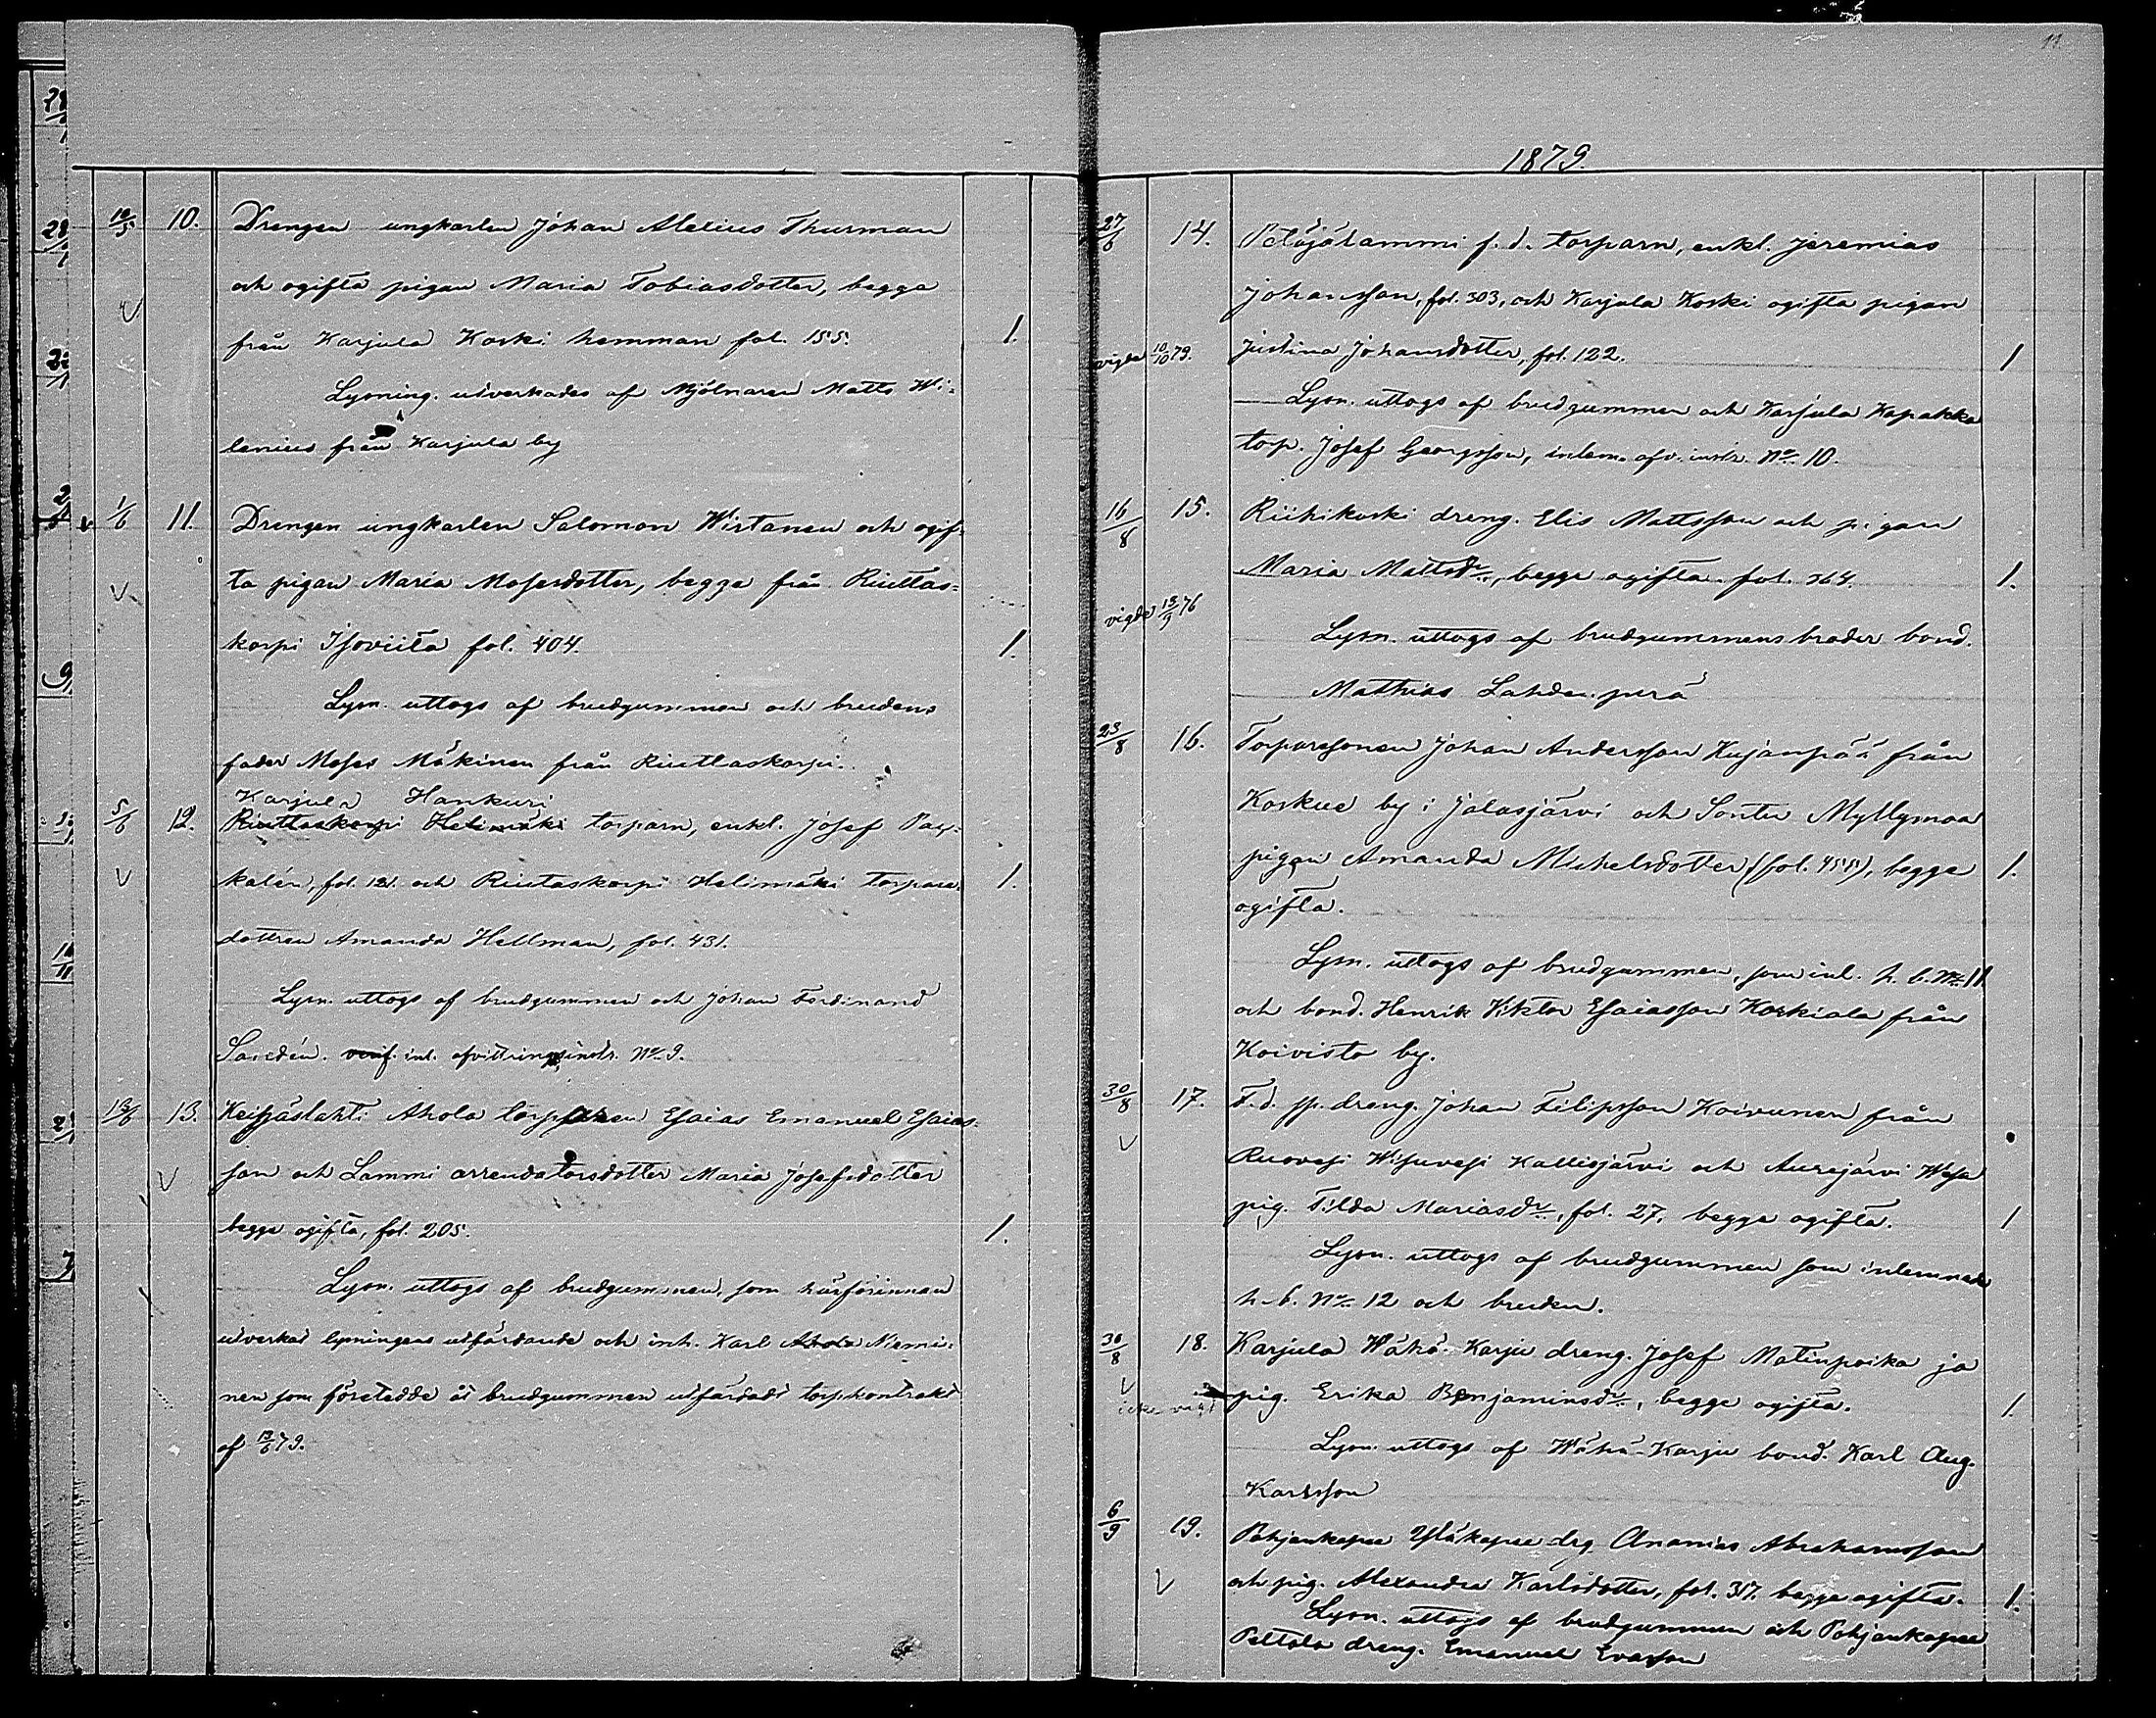 10/5 10. Drengen ungkarlen Johan Alexius Thurman
och ogifta pigan Maria Tobiasdotter, begge
från Karjula Koski hemman fol. 155. 1.
Lysning. utverkades af Mjölnaren Matts Wi-
lenius från Karjula by
1/6 11. Drengen ungkarlen Salomon Wirtanen och ogif-
ta pigan Maria Mosesdotter, begge från Riuttas-
korpi Isoviita fol. 404. 1.
Lysn. uttogs af brudgummen och brudens
fader Moses Mäkinen från Riuttaskorpi.
Karjula Hankuri
5/6 12. Riuttaskorpi Helimäki torparn, enkl. Josef Pas-
kalén, fol. 121. och Riutaskorpi Helimäki torpare- 1.
dottren Amanda Hellman, fol. 431.
Lysn. uttogs af brudgummen och Johan Ferdinand
Sandén. inl. afvittringsinstr. No. 9.
13/6 13. Keipäslahti Ahola torparen Esaias Emanuel Esaias-
son och Lammi arrendatorsdotter Maria Josefsdotter
begge ogifta, fol. 205. 1.
Lysn. uttogs af brudgummen, som härförinnan
utverkat lysningens utfärdande och inh. Karl Ahola Niemi-
nen som företedde åt brudgummen utfärdadt torpkontrakt
af 13/6 79.
11
1879.
27/6 14. Petäjälammi f. d. torparn, enkl. Jeremias
Johansson, fol. 303, och Karjula Koski ogifta pigan
vigde 10/10 79. Justina Johansdotter, fol. 122. 1
Lysn. uttogs af brudgummen och Karjula Kapakka
torp. Josef Georgsson, inlem. afv. instr. No. 10.
16/8 15. Riihikoski dreng. Elis Mattsson och pigan
Maria Mattsdr., begge ogifta. fol. 364. 1.
vigde 13/9 76
Lysn. uttogs af brudgummens broder bond.
Mathias Lahdenperä
23/8 16. Torparesonen Johan Andersson Kujanpää från
Koskue by i Jalasjärvi och Sonter Myllymaa
pigan Amanda Michelsdotter (fol. 455), begge 1.
ogifta.
Lysn. uttogs af brudgummen, som inl. h. b. No. 11
och bond. Henrik Viktor Esaiasson Koskiala från
Koivisto by.
30/8 17. F. d. sp. dreng. Johan Filipsson Koivunen från
Ruovesi Wisuvesi Kallisjärvi och Aurejärvi Wesa
pig. Tilda Mariasdr., fol. 27, begge ogifta. 1
Lysn. uttogs af brudgummen som inlemnade
h. b. No. 12 och bruden.
30/8 18. Karjula Wähä-Karju dreng. Josef Matinpoika ja
icke vigd pig. Erika Benjaminsdr., begge ogifta. 1.
Lysn. uttogs af Wähä-Karju bond. Karl Aug.
Karlsson
6/9 19. Pohjankapee Yläkapee drg Ananias Abrahamsson
och pig. Alexandra Karlsdotter, fol. 317. begge ogifta. 1.
Lysn. uttogs af brudgummen och Pohjankapee
Peltola dreng. Emanuel Evasson